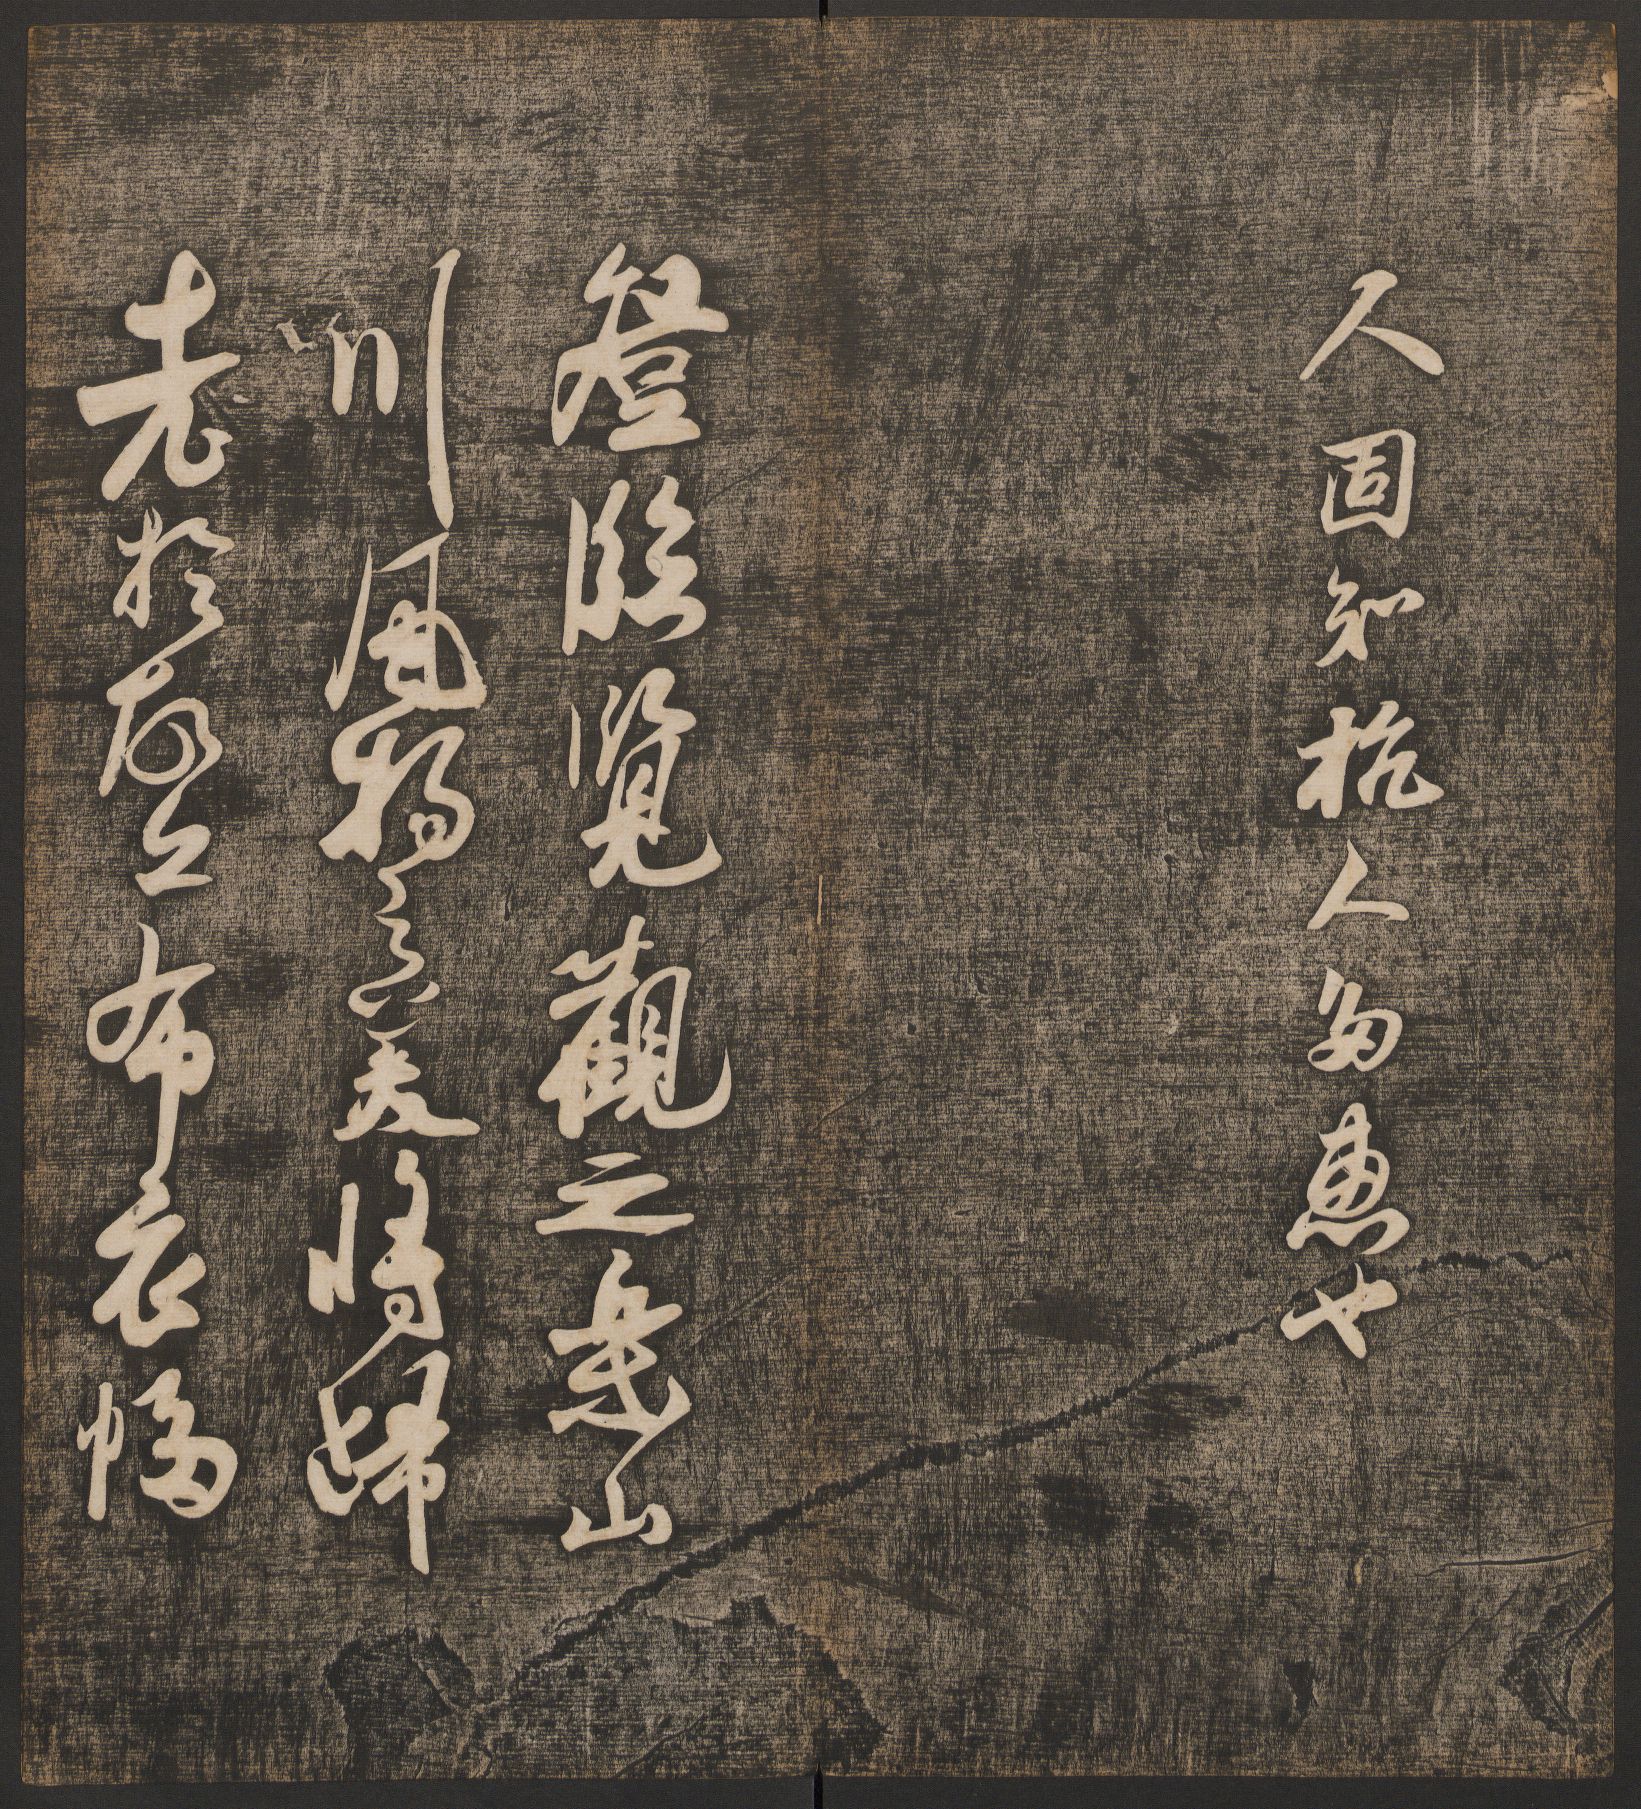 人固知杭人多惠也
登臨覽觀之樂山
川風物之美將歸
老於丘布衣幅